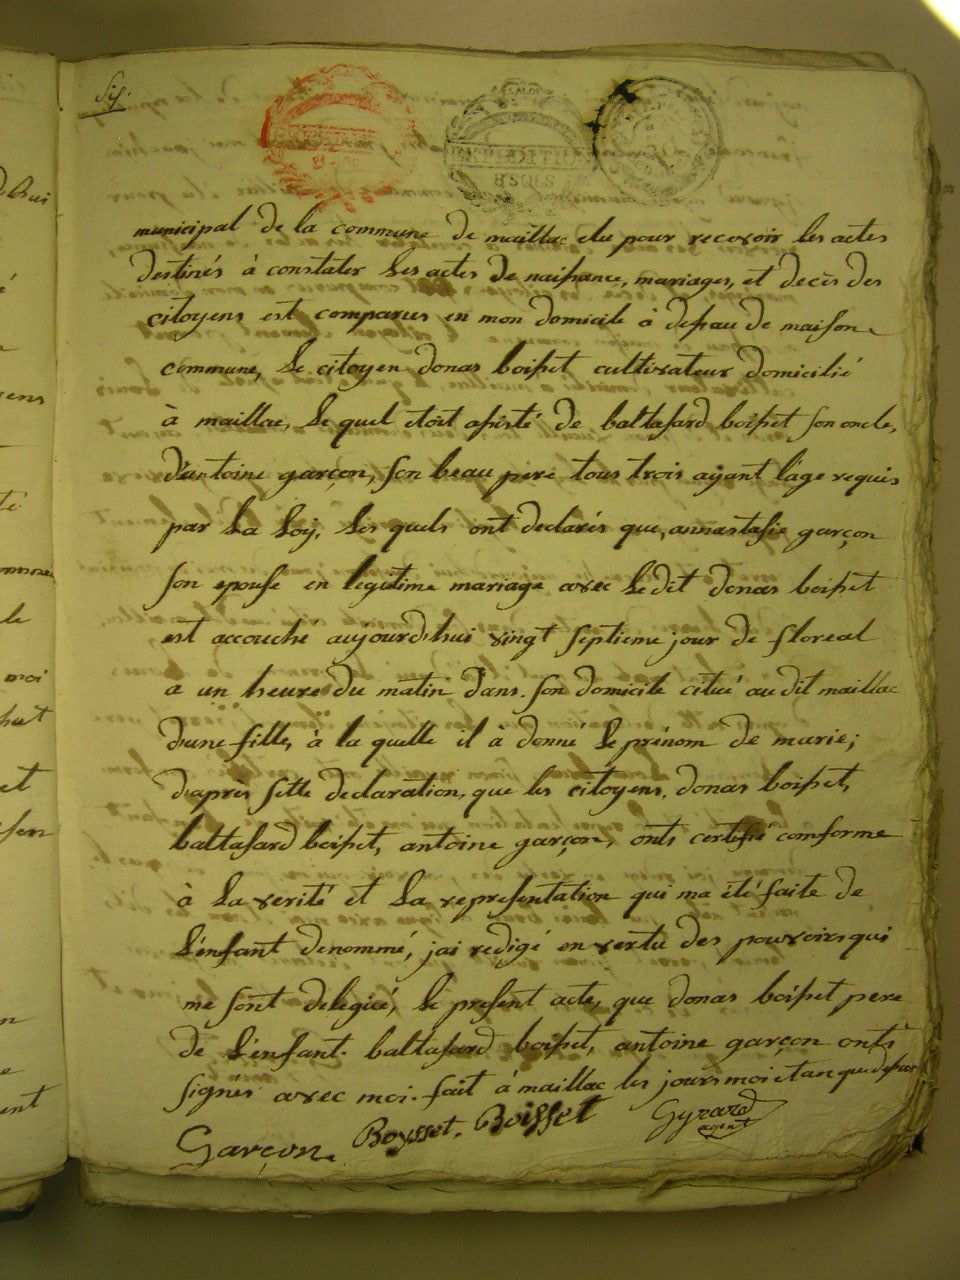 Six.
EXPÉDITION
8 SOLS
municipal de la commune de maillac elu pour recevoir les actes
destinés à constater les actes de naissance, mariages, et decès des
citoyens est comparus en mon domicile à defau de maison
commune, le citoyen donas boisset cultivateur domicilié
à maillac, le quel étoit assisté de baltasard boisset son oncle,
d'antoine garçon, son beau pere tous trois ayant l'age requis
par la loy, les quels ont declarés que, annastasie garçon
son epouse en legitime mariage avec le dit donas boisset
est accouché aujourd'hui vingt septieme jour de floreal
a un heure du matin dans son domicile citué au dit maillac
d'une fille, à la quelle il à donné le prénom de marie;
d'après sette declaration, que les citoyens, donas boisset,
baltasard boisset, antoine garçon, onts certifié comforme
à la verité et la representation qui ma été faite de
l'enfant denommé, jai redigé en vertu des pouvoirs qui
me sont delegué, le present acte, que donas boisset pere
de l'enfant. baltasard boisset, antoine garçon onts
signés avec moi. fait à maillac les jours moi et an que dessus
Garçon Boysset. Boisset Gyrard
agent